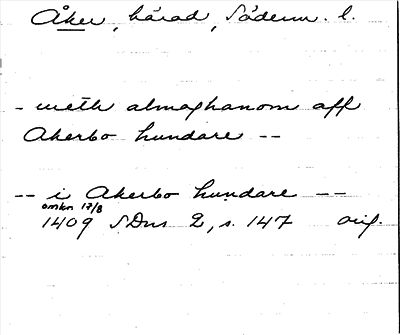 Åker, härad, Söderm. l.
- meth almoghanom aff
Akerbo hundare --
-- i Akerbo hundare --
omkr 17/8
1409 SDns 2, s. 147 orig.